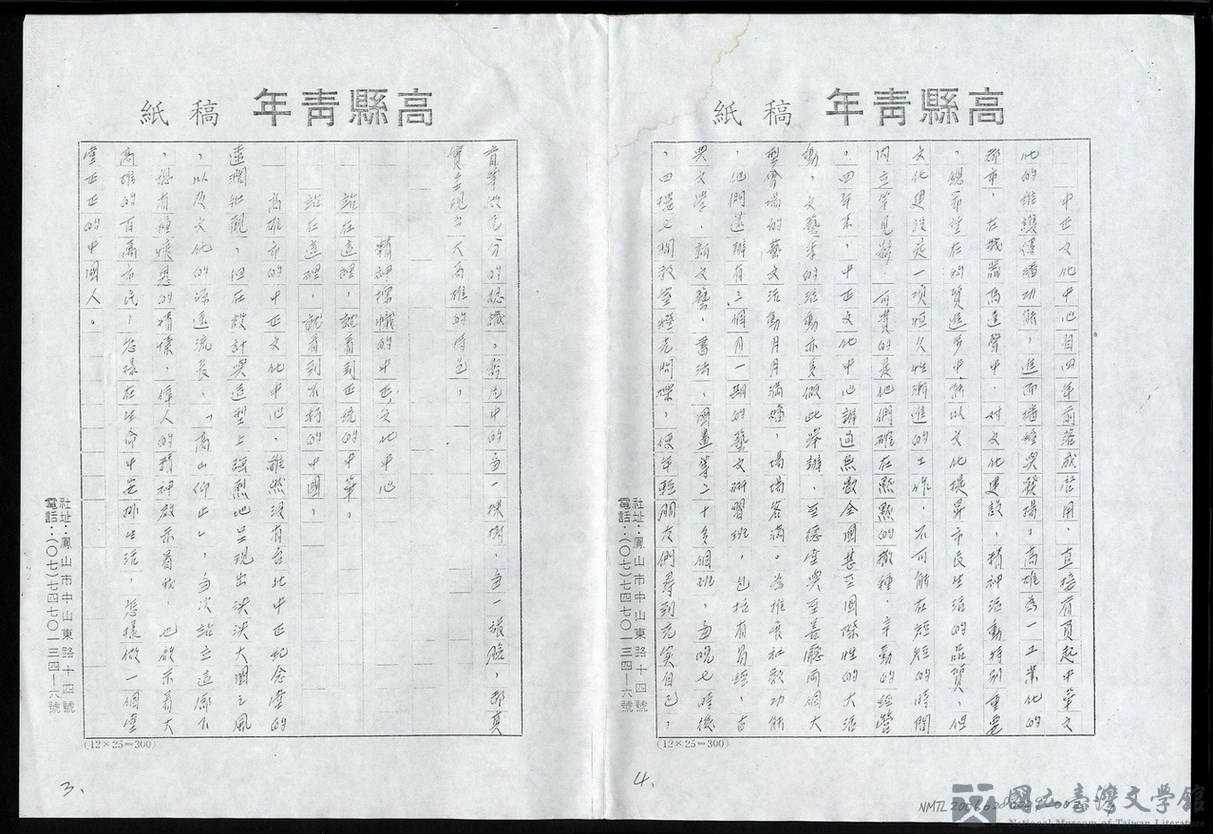 高縣青年 稿紙
中正文化中心自四年前落成啓用，直接肩負起中華文
化的維護傳播功能，進而播種與發揚，高雄為一工業化的
都市，在我需高速聲中，對文化建設，精神活動特別重要
，總希望在物質進步中，能以文化提昇市民生活的品質，但
文化建設是一項恒久性漸進的工作，不可能在短短的時間
內立竿見影，可貴的是他們確在默默的撒種，辛勤的經營
，四年來，中正文化中心辦過無數全國甚至國際性的大活
動，文藝季的活動亦多假此舉辦，至德堂與至善廳兩個大
型會場的藝文活動月月滿檔，場場客滿。為推廣社教功能
，他們還辦有三個月一期的藝文研習班，包括有易經，古
典文學，新文藝，書法，國畫等二十多個班，每晚七時後
，四樓之間教室燈光閃爍，使年輕朋友們尋到充實自己，
(12×25=300)
社址：鳳山市中山東路十四號
電話：(〇七)七四七〇一三四—六號
4.
高縣青年 稿紙
育等做充分的認識，影片中的每一棵樹，每一張臉，都真
實呈現出大高雄的特色。
精神標幟的中正文化中心
站在這裡，就看到正統的中華，
站在這裡，就看到不朽的中國，
高雄市的中正文化中心，雖然沒有台北中正紀念堂的
遠濶壯觀，但在設計與造型上強烈地呈現出泱泱大國之風
，以及文化的源遠流長，「高山仰止」，每次站立這廊下
，總有種懷恩的情愫，偉人的精神啟示着我，也啟示着大
高雄的百萬市民，怎樣在生命中安排生活，怎樣做一個堂
堂正正的中國人。
(12×25=300)
社址：鳳山市中山東路十四號
電話：(〇七)七四七〇一三四—六號
3.
國立臺灣文學館
National Museum of Taiwan Literature